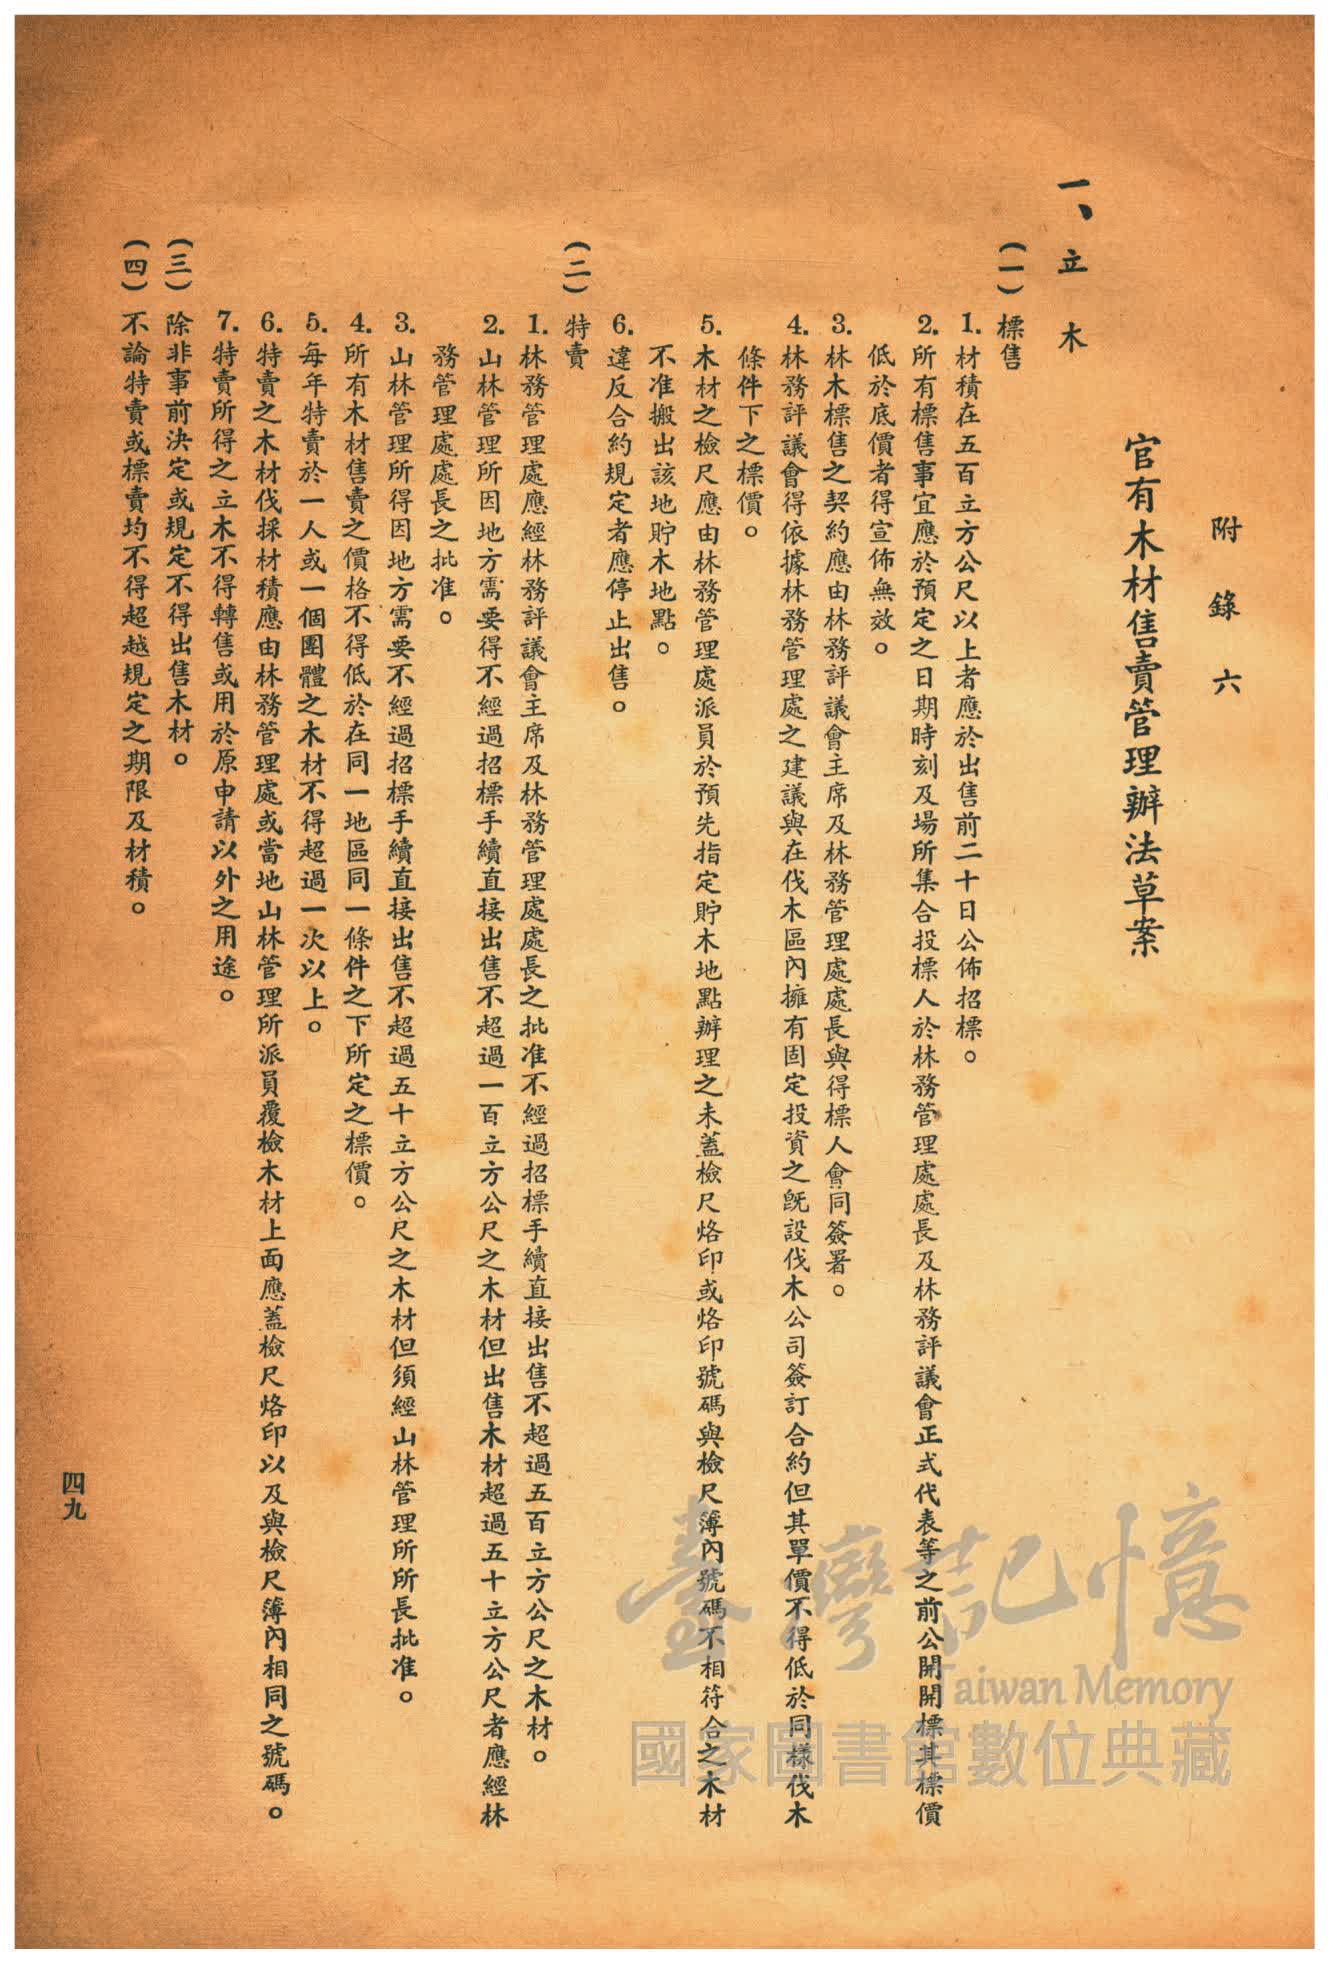 附錄六
官有木材售賣管理辦法草案
一、立木
(一)標售
1.材積在五百立方公尺以上者應於出售前二十日公佈招標。
2.所有標售事宜應於預定之日期時刻及場所集合投標人於林務管理處處長及林務評議會正式代表等之前公開開標其標價
低於底價者得宣佈無效。
3.林木標售之契約應由林務評議會主席及林務管理處處長與得標人會同簽署。
4.林務評議會得依據林務管理處之建議與在伐木區內擁有固定投資之既設伐木公司簽訂合約但其單價不得低於同樣伐木
條件下之標價。
5.木材之檢尺應由林務管理處派員於預先指定貯木地點辦理之未蓋檢尺烙印或烙印號碼與檢尺簿內號碼不相符合之木材
不准搬出該地貯木地點。
6.違反合約規定者應停止出售。
(二)特賣
1.林務管理處應經林務評議會主席及林務管理處處長之批准不經過招標手續直接出售不超過五百立方公尺之木材。
2.山林管理所因地方需要得不經過招標手續直接出售不超過一百立方公尺之木材但出售木材超過五十立方公尺者應經林
務管理處處長之批准。
3.山林管理所得因地方需要不經過招標手續直接出售不超過五十立方公尺之木材但須經山林管理所所長批准。
4.所有木材售賣之價格不得低於在同一地區同一條件之下所定之標價。
5.每年特賣於一人或一個團體之木材不得超過一次以上。
6.特賣之木材伐採材積應由林務管理處或當地山林管理所派員覆檢木材上面應蓋檢尺烙印以及與檢尺簿內相同之號碼。
7.特賣所得之立木不得轉售或用於原申請以外之用途。
(三)除非事前決定或規定不得出售木材。
(四)不論特賣或標賣均不得超越規定之期限及材積。
四九
臺灣記憶
Taiwan Memory
國家圖書館數位典藏